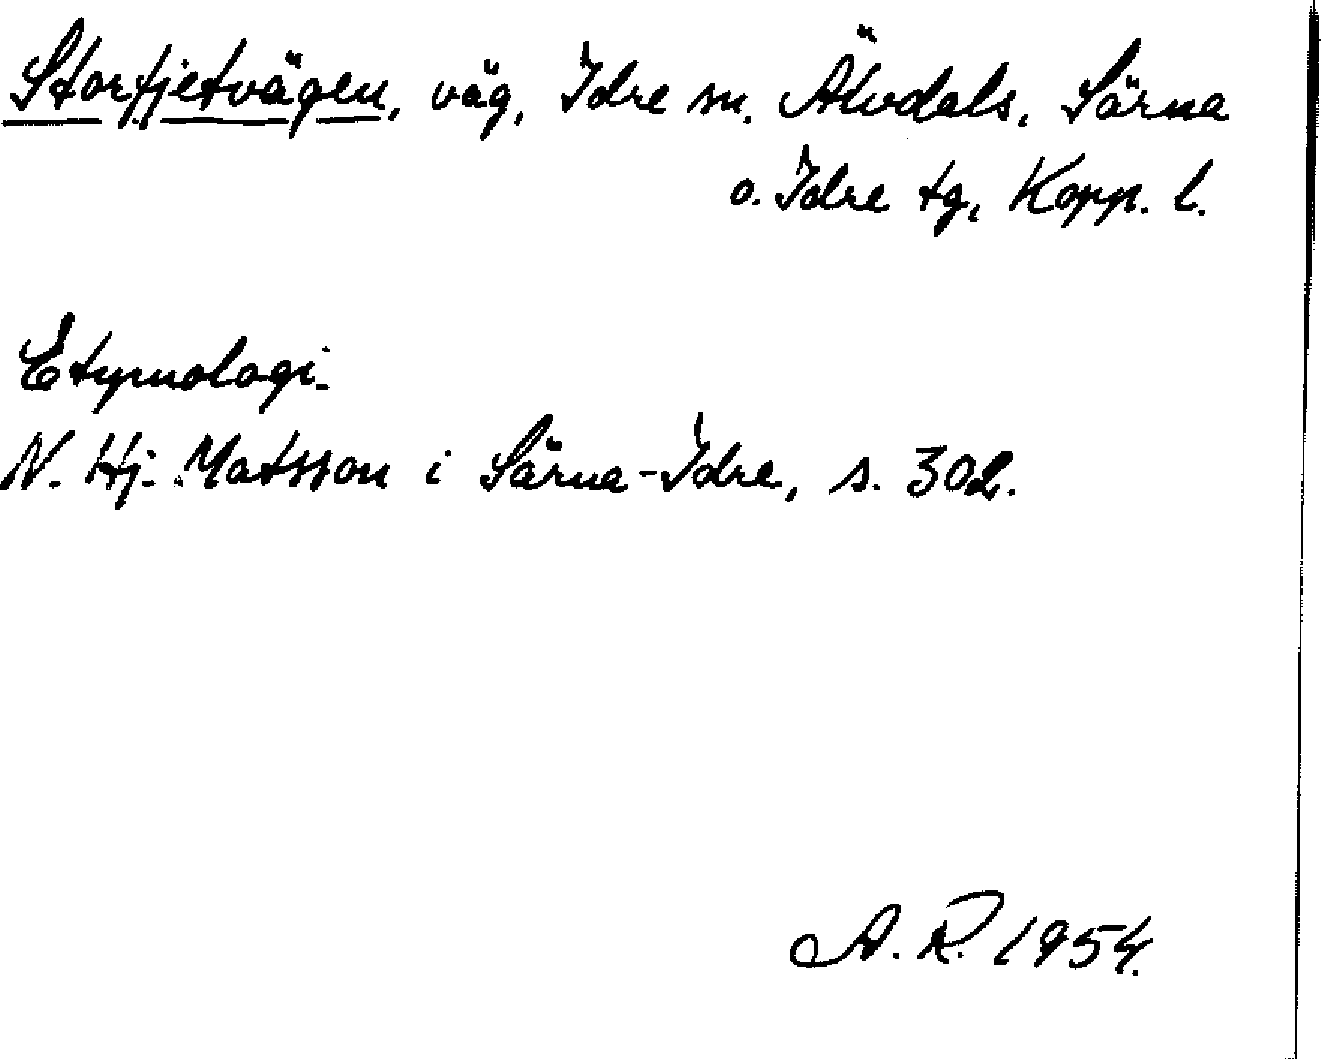 Storfjetvägen, väg, Idre sn, Älvdals, Särna
o. Idre tg, Kopp. l.
Etymologi.
N. Hj. Matsson i Särna-Idre, s. 302.
A. R. 1954.